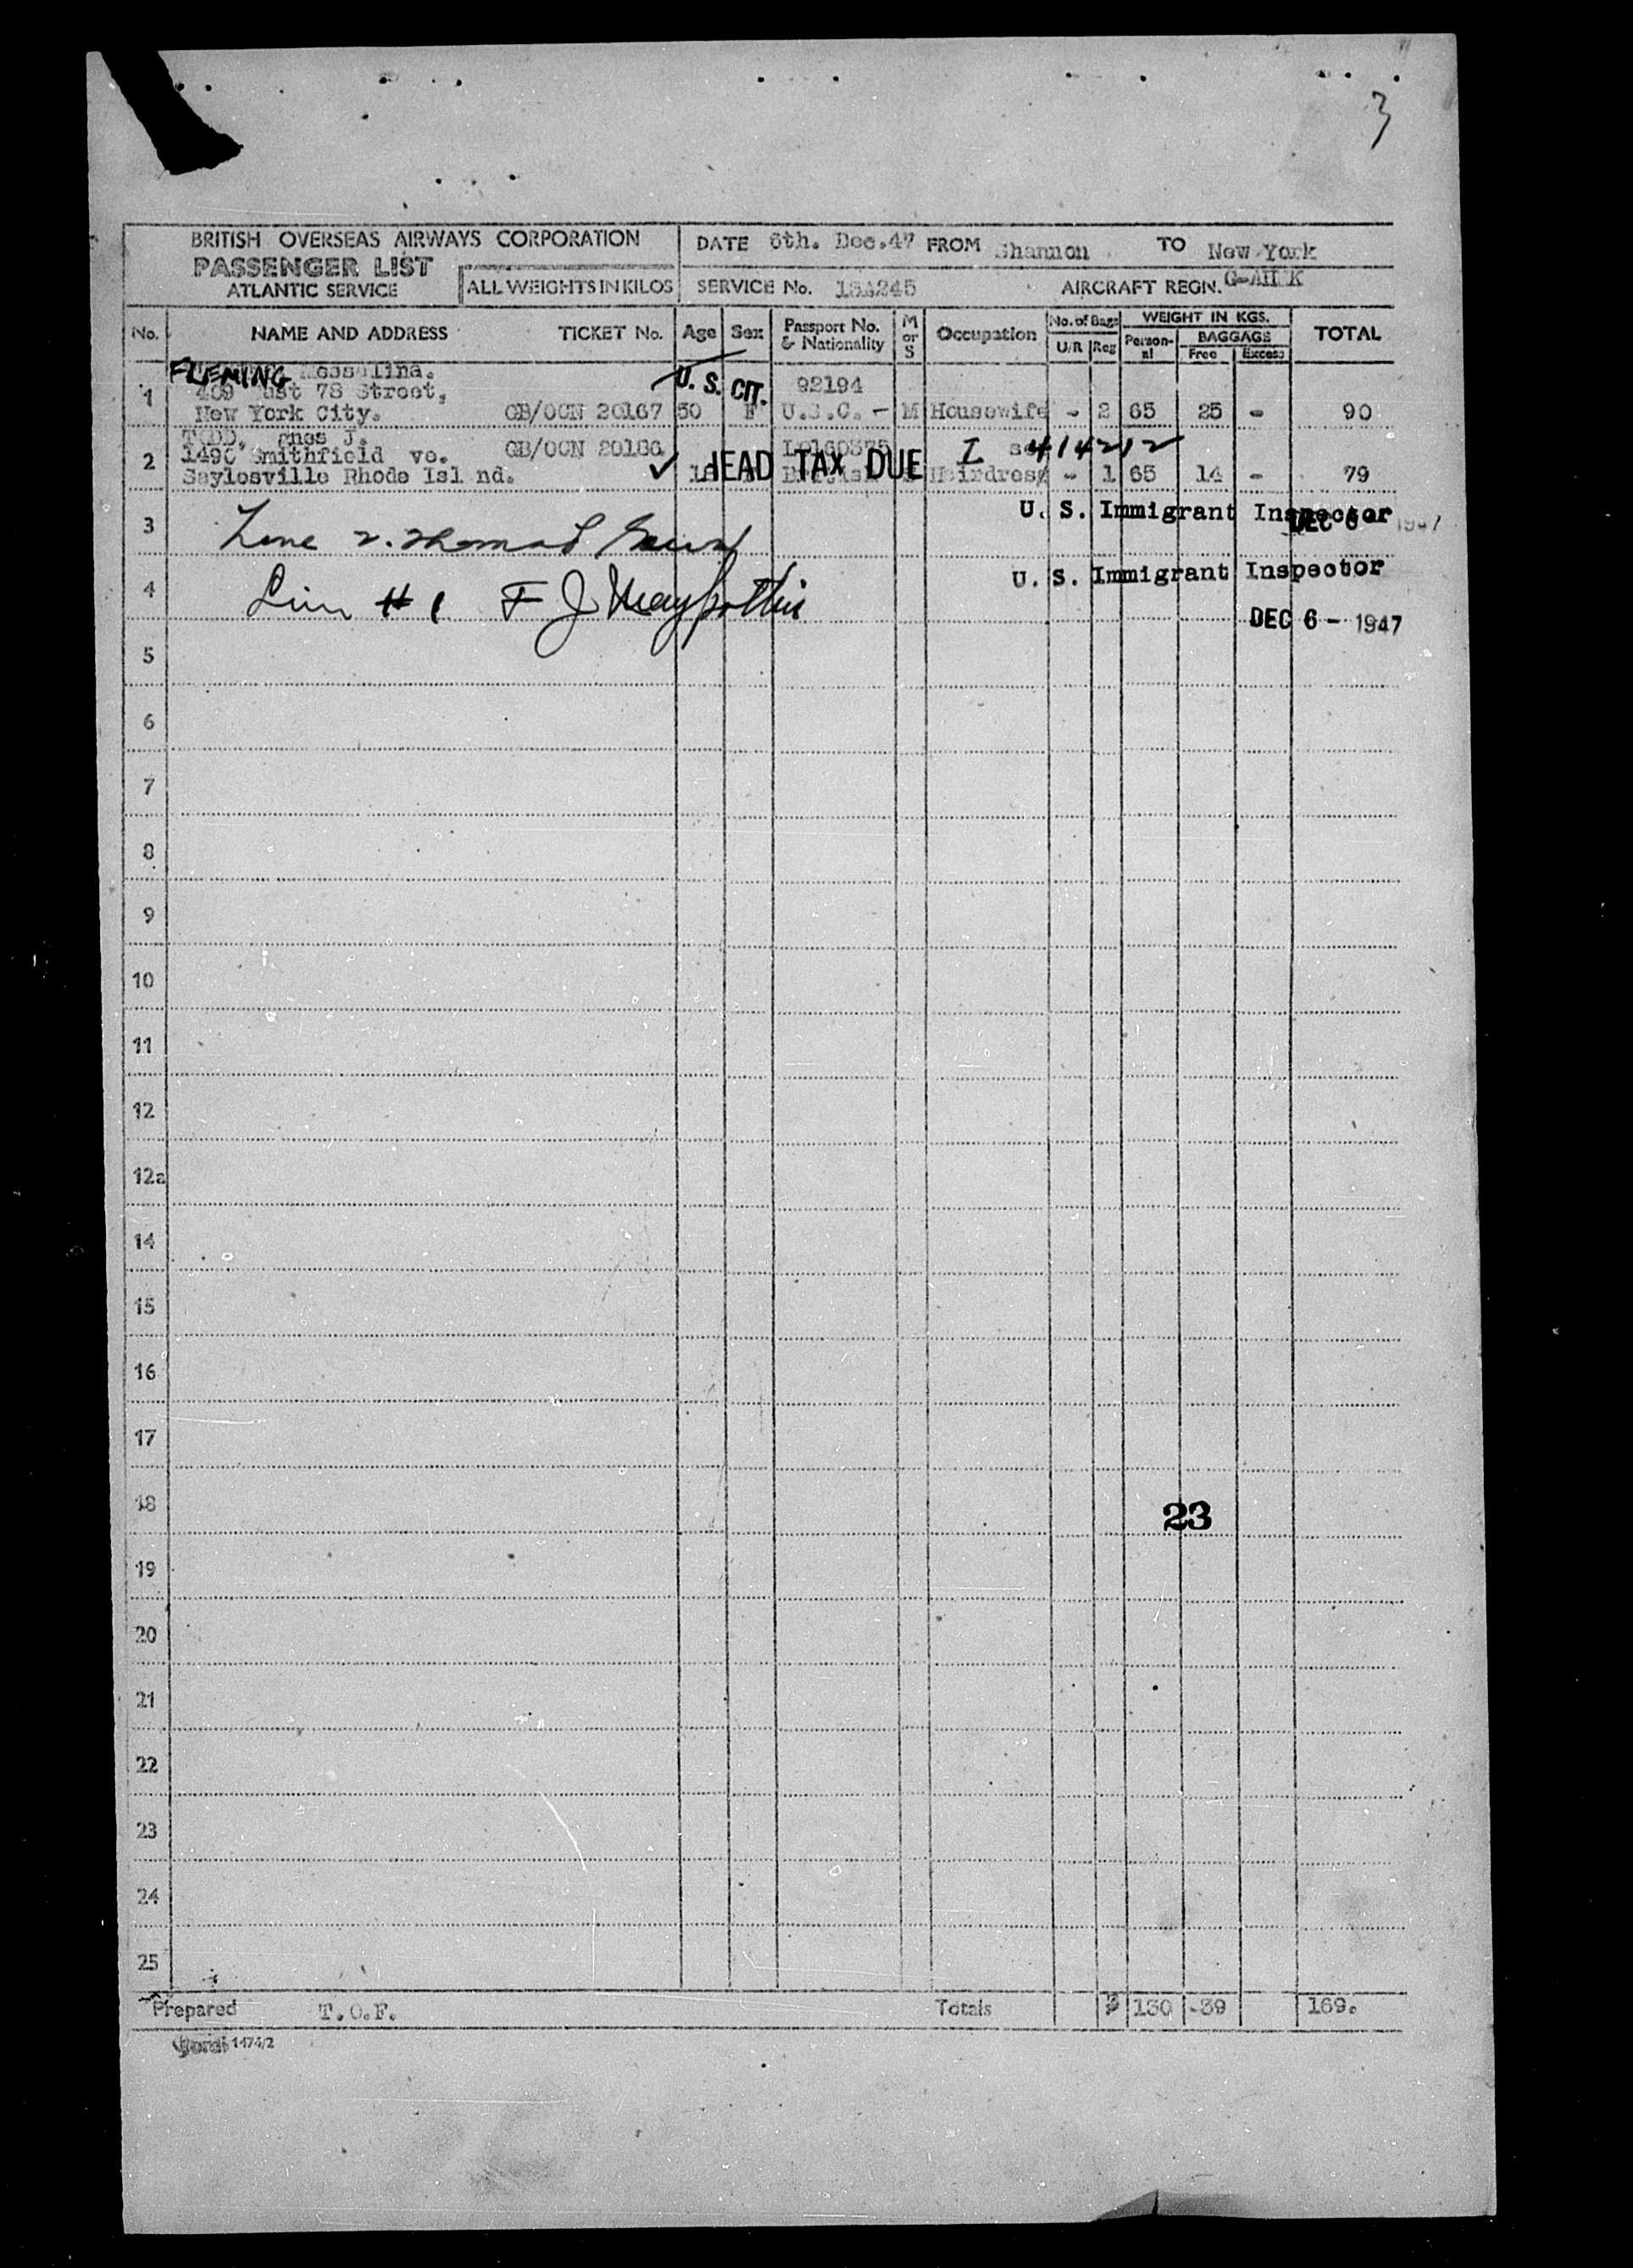 3
BRITISH OVERSEAS AIRWAYS CORPORATION
PASSENGER LIST
ATLANTIC SERVICE
ALL WEIGHTS IN KILOS
DATE 6th. Dec.47 FROM Shannon TO New York
SERVICE No. 15A245 AIRCRAFT REGN.
No. NAME AND ADDRESS TICKET No. Age Sex Passport No. & Nationality M or S Occupation No. of Bags U/R Reg WEIGHT IN KGS. Person-al BAGGAGE Free Excess TOTAL
FLEMING Messalina.
U. S. CIT. 92194
1 409 East 78 Street,
New York City. GB/OCN 20167 50 F U.S.C. - M Housewife - 2 65 25 - 90
TODD, gnes J.
2 1490 Smithfield ve. GB/OCN 20186 I 414212
Saylesville Rhode Isl nd. ✓ HEAD TAX DUE Hairdress - 1 65 14 - 79
3 Line 2. Thomas
U. S. Immigrant Inspector
DEC 6 - 1947
4 Line #1 F J
U. S. Immigrant Inspector
DEC 6 - 1947
5
6
7
8
9
10
11
12
12a
14
15
16
17
18
23
19
20
21
22
23
24
25
Prepared T.O.F. Totals 3 130 39 169.
1474/2